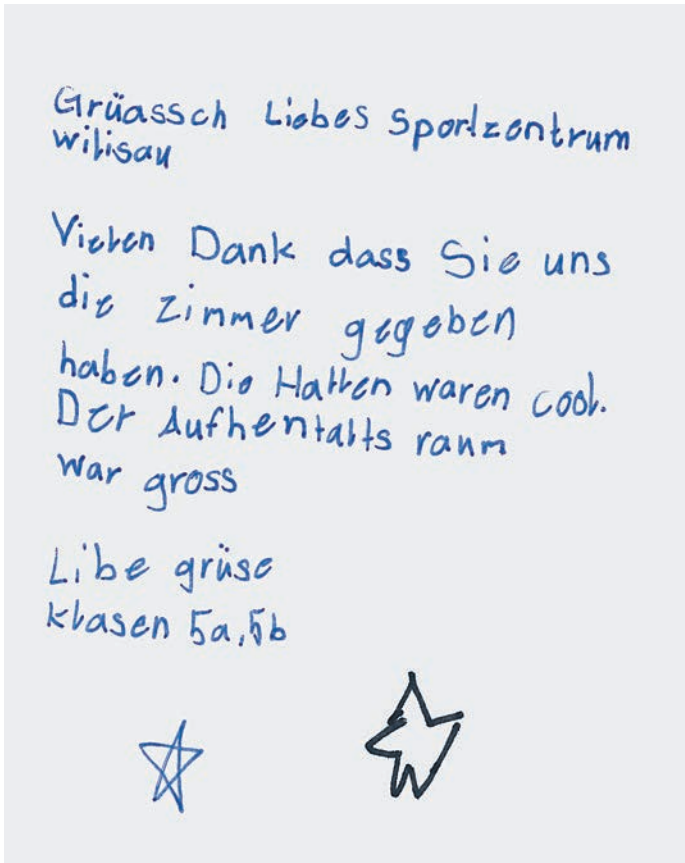 Grüassch Liebes Sportzentrum
Wilisau
Vielen Dank dass Sie uns
die Zimmer gegeben
haben. Die Hallen waren cool.
Der Aufhentalts raum
war gross
Libe grüse
klasen 5a, 5b